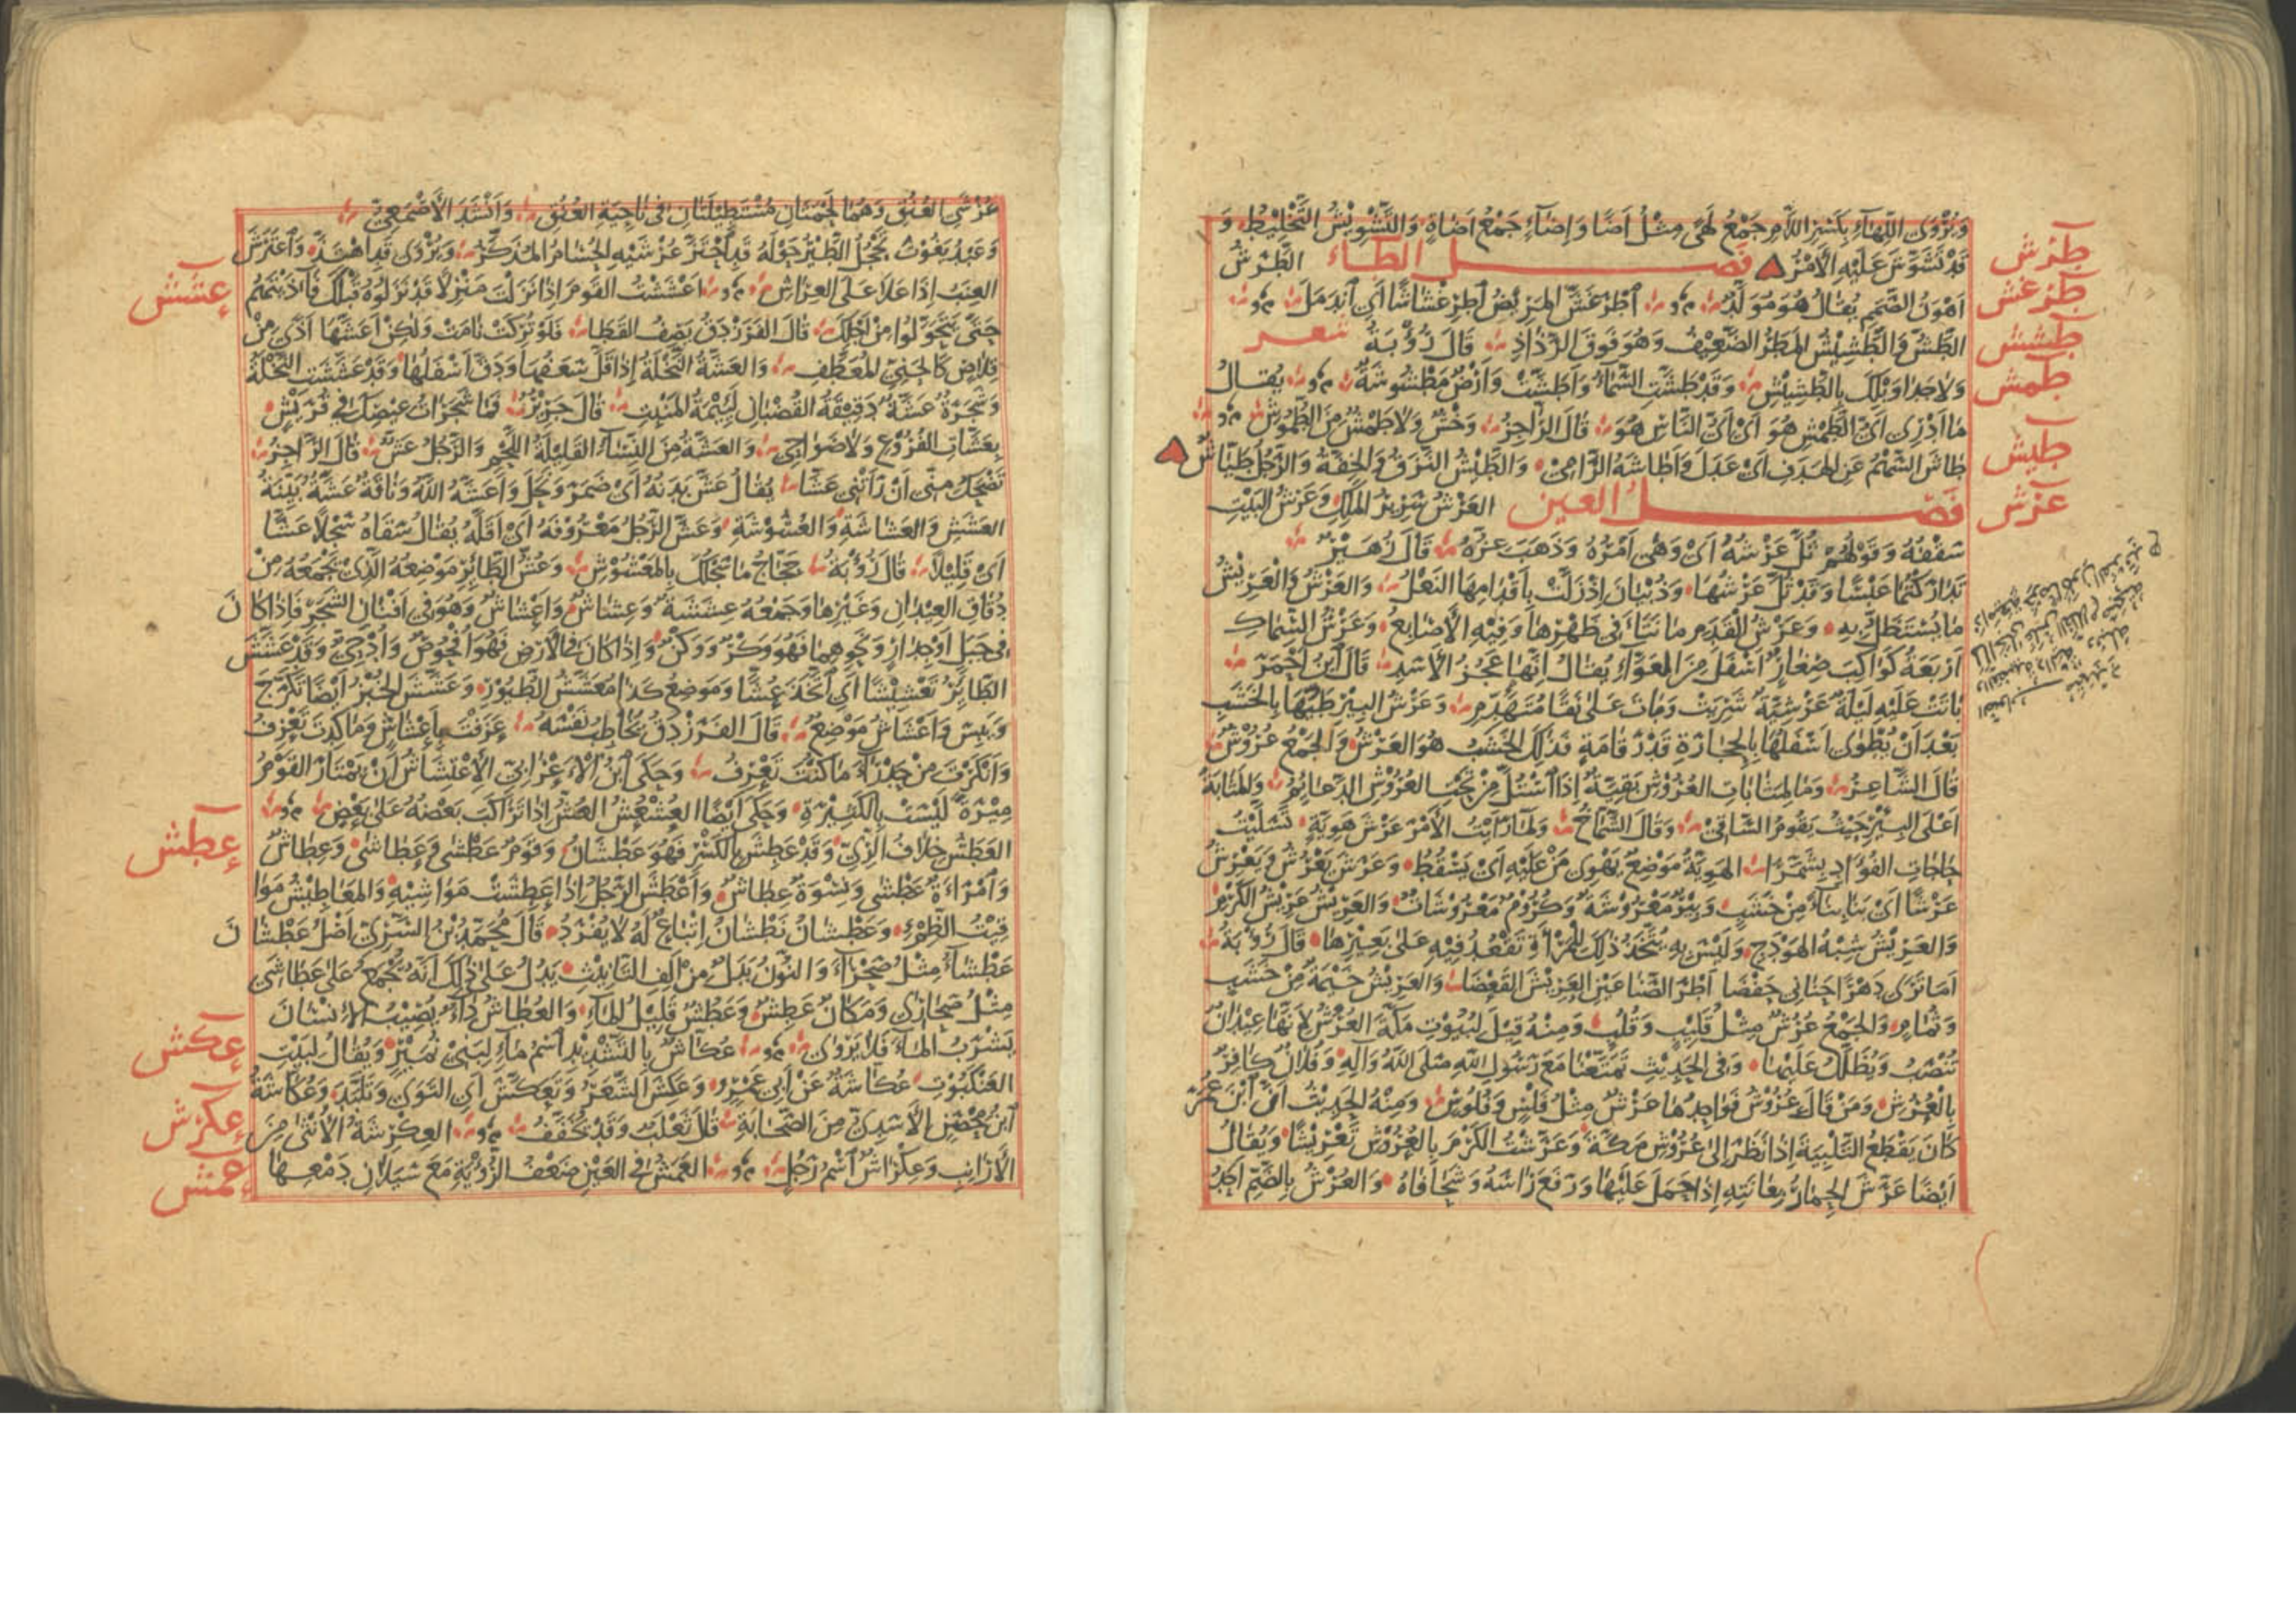 وَيُرْوَى اللِّهَاءِ بِكَسْرِ اللَّامِ جَمْعُ لَهًى مِثْلُ أَضًا وَإِضَاءٍ جَمْعُ أَضَاةٍ وَالتَّشْوِيْشُ التَّخْلِيْطُ وَ
قَدْ تَشَوَّشَ عَلَيْهِ الْأَمْرُ فصل الطاء الطَّرَشُ
طرش
أَهْوَنُ الصَّمَمِ يُقَالُ هُوَ مُوَلَّدٌ اِطْرَغَشَّ المَرِيْضُ اِطْرِغْشَاشًا أَيِ انْدَمَلَ
طرغش
الطَّشُّ وَالطَّشِيْشُ المَطَرُ الضَّعِيْفُ وَهُوَ فَوْقَ الرَّذَاذِ قَالَ رُؤْبَةُ شعر
طشش
وَلَا جَدَا وَبْلِكَ بِالطَّشِيْشِ وَقَدْ طَشَّتِ السَّمَاءُ وَأَطَشَّتْ وَأَرْضٌ مَطْشُوشَةٌ يُقَالُ
طمش
مَا أَدْرِي أَيُّ الطَّمْشِ هُوَ أَيْ أَيُّ النَّاسِ هُوَ قَالَ الرَّاجِزُ وَحْشٌ وَلَا طَمْشٌ مِنَ الطُّمُوشِ
طَاشَ السَّهْمُ عَنِ الهَدَفِ أَيْ عَدَلَ وَأَطَاشَهُ الرَّامِيْ وَالطَّيْشُ النَّزَقُ وَالخِفَّةُ وَالرَّجُلُ طَيَّاشٌ
طيش
فصل العين العَرْشُ سَرِيْرُ المَلِكِ وَعَرْشُ البَيْتِ
عرش
سَقْفُهُ وَقَوْلُهُمْ ثُلَّ عَرْشُهُ أَيْ وَهَى أَمْرُهُ وَذَهَبَ عِزُّهُ قَالَ زُهَيْرٌ
تَدَارَكْتُمَا عَبْسًا وَقَدْ ثُلَّ عَرْشُهَا وَذُبْيَانَ إِذْ زَلَّتْ بِأَقْدَامِهَا النَّعْلُ وَالعَرْشُ وَالعَرِيْشُ
مَا يُسْتَظَلُّ بِهِ وَعَرْشُ القَدَمِ مَا نَتَأَ فِي ظَهْرِهَا وَفِيْهِ الْأَصَابِعُ وَعَرْشُ السِّمَاكِ
أَرْبَعَةُ كَوَاكِبَ صِغَارٌ أَسْفَلَ مِنَ العَوَّاءِ يُقَالُ إِنَّهَا عَجُزُ الْأَسَدِ قَالَ ابْنُ أَحْمَرَ
بَاتَتْ عَلَيْهِ لَيْلَةٌ عَرْشِيَّةٌ شَرِيَتْ وَبَاتَ عَلَى نَقًا مُتَهَدِّمِ وَعَرْشُ البِيْرِ طَيُّهَا بِالخَشَبِ
بَعْدَ أَنْ يُطْوَى أَسْفَلُهَا بِالحِجَارَةِ قَدْرَ قَامَةٍ فَذَلِكَ الخَشَبُ هُوَ العَرْشُ وَالجَمْعُ عُرُوْشٌ
قَالَ الشَّاعِرُ وَمَا لِمَثَابَاتِ العُرُوْشِ بَقِيَّةٌ إِذَا اسْتُلَّ مِنْ تَحْتِ العُرُوْشِ الدَّعَائِمُ وَالمَثَابَةُ
أَعْلَى البِئْرِ حَيْثُ يَقُومُ السَّاقِيْ وَقَالَ الشَّمَّاخُ وَلَمَّا رَأَيْتُ الْأَمْرَ عَرْشَ هَوِيَّةٍ تَسَلَّيْتُ
حَاجَاتِ الفُؤَادِ بِشَمَّرَا الهَوِيَّةُ مَوْضِعٌ يَهْوِي مَنْ عَلَيْهِ أَيْ يَسْقُطُ وَعَرَشَ يَعْرُشُ وَيَعْرِشُ
عَرْشًا أَيْ بَنَا بِنَاءً مِنْ خَشَبٍ وَبِئْرٌ مَعْرُوْشَةٌ وَكُرُوْمٌ مَعْرُوْشَاتٌ وَالعَرِيْشُ عَرِيْشُ الكَرْمِ
وَالعَرِيْشُ شِبْهُ الهَوْدَجِ وَلَيْسَ بِهِ يُتَّخَذُ ذٰلِكَ لِلْمَرْأَةِ تَقْعُدُ فِيْهِ عَلَى بَعِيْرِهَا قَالَ رُؤْبَةُ
أَمَا تَرَى دَهْرًا حَنَانِي حَفْضَا أَطْرَ الصَّنَاعَيْنِ العَرِيْشَ القَعْضَا وَالعَرِيْشُ خَيْمَةٌ مِنْ خَشَبٍ
وَثُمَامٍ وَالجَمْعُ عُرُشٌ مِثْلُ قَلِيْبٍ وَقُلُبٍ وَمِنْهُ قِيْلَ لِبُيُوْتِ مَكَّةَ العُرُشُ لِأَنَّهَا عِيْدَانٌ
تُنْصَبُ وَيُظَلَّلُ عَلَيْهَا وَفِي الحَدِيْثِ تَمَتَّعْنَا مَعَ رَسُوْلِ اللهِ صَلَّى اللهُ وَآلِهِ وَفُلَانٌ كَافِرٌ
بِالْعُرُشِ وَمَنْ قَالَ عُرُوْشٌ فَوَاحِدُهَا عَرْشٌ مِثْلُ فَلْسٍ وَفُلُوْسٍ وَمِنْهُ الحَدِيْثُ أَنَّ ابْنَ عُمَرَ
كَانَ يَقْطَعُ التَّلْبِيَةَ إِذَا نَظَرَ إِلَى عُرُوْشِ مَكَّةَ وَعَرَّشْتُ الكَرْمَ بِالعُرُوْشِ تَعْرِيْشًا وَيُقَالُ
أَيْضًا عَرَّشَ الحِمَارُ بِعَانَتِهِ إِذَا حَمَلَ عَلَيْهَا وَرَفَعَ رَأْسَهُ وَشَحَا فَاهُ وَالعُرْشُ بِالضَّمِّ أَحَدُ
عُرْشَيِ العُنُقِ وَهُمَا لَحْمَتَانِ مُسْتَطِيْلَتَانِ فِي نَاحِيَةِ العُنُقِ وَأَنْشَدَ الْأَصْمَعِيُّ
وَعَبْدُ يَغُوْثَ تَحْجُلُ الطَّيْرُ حَوْلَهُ قَدِ احْتَزَّ عُرْشَيْهِ الحُسَامُ المُذَكَّرُ وَيُرْوَى قَدِ اهْتَذَّ وَاعْتَرَشَ
العِنَبُ إِذَا عَلَا عَلَى العِرَاشِ أَعْشَشْتُ القَوْمَ إِذَا نَزَلْتَ مَنْزِلًا قَدْ نَزَلُوْهُ قَبْلَكَ فَآذَيْتَهُمْ
عشش
حَتَّى يَتَحَوَّلُوا مِنْ أَجْلِكَ قَالَ الفَرَزْدَقُ يَصِفُ القَطَا فَلَوْ تُرِكَتْ نَامَتْ وَلَكِنْ أَعَشَّهَا أَذًى مِنْ
قِلَاصٍ كَالحَنِيِّ المُعَطَّفِ وَالعَشَّةُ النَّخْلَةُ إِذَا قَلَّ سَعَفُهَا وَدَقَّ أَسْفَلُهَا وَقَدْ عَشَّشَتِ النَّخْلَةُ
وَشَجَرَةٌ عَشَّةٌ دَقِيْقَةُ القُضْبَانِ لَئِيْمَةُ المَنْبِتِ قَالَ جَرِيْرٌ فَمَا شَجَرَاتُ عِيْصِكَ فِي قُرَيْشٍ
بِعَشَّاتِ الفُرُوْعِ وَلَا ضَوَاحِيْ وَالعَشَّةُ مِنَ النِّسَاءِ القَلِيْلَةُ اللَّحْمِ وَالرَّجُلُ عَشٌّ قَالَ الرَّاجِزُ
تَضْحَكُ مِنِّي أَنْ رَأَتْنِي عَشَّا يُقَالُ عَشَّ بَدَنُهُ أَيْ ضَمَرَ وَنَحَلَ وَأَعَشَّهُ اللَّهُ وَنَاقَةٌ عَشَّةٌ بَيِّنَةُ
العَشَشِ وَالعَشَاشَةِ وَالعُشُوْشَةِ وَعَشَّ الرَّجُلُ مَعْرُوْفَهُ أَيْ أَقَلَّهُ يُقَالُ سَقَاهُ سَجْلًا عَشًّا
أَيْ قَلِيْلًا قَالَ رُؤْبَةُ حَجَّاجُ مَا سَجْلُكَ بِالمَعْشُوْشِ وَعُشُّ الطَّائِرِ مَوْضِعُهُ الَّذِيْ يَجْمَعُهُ مِنْ
دُقَاقِ العِيْدَانِ وَغَيْرِهَا وَجَمْعُهُ عِشَشَةٌ وَعِشَاشٌ وَأَعْشَاشٌ وَهُوَ فِي أَفْنَانِ الشَّجَرِ فَإِذَا كَانَ
فِي جَبَلٍ أَوْ جِدَارٍ وَنَحْوِهِمَا فَهُوَ وَكْرٌ وَوَكْنٌ وَإِذَا كَانَ فِي الْأَرْضِ فَهُوَ أُفْحُوْصٌ وَأُدْحِيٌّ وَقَدْ عَشَّشَ
الطَّائِرُ تَعْشِيْشًا أَيِ اتَّخَذَ عُشًّا وَمَوْضِعُ كَذَا مُعَشَّشُ الطُّيُوْرِ وَعَشَّشَ الخُبْزُ أَيْضًا تَكَرَّجَ
وَيَبِسَ وَأَعْشَاشٌ مَوْضِعٌ قَالَ الفَرَزْدَقُ يُخَاطِبُ نَفْسَهُ عَزَفْتَ بِأَعْشَاشٍ وَمَا كِدْتَ تَعْزِفُ
وَأَنْكَرْتَ مِنْ حَدْرَاءَ مَا كُنْتَ تَعْرِفُ وَحَكَى ابْنُ الْأَعْرَابِيِّ الْاِعْتِشَاشُ أَنْ يَمْتَارَ القَوْمُ
مِيْرَةً لَيْسَتْ بِالكَثِيْرَةِ وَحَكَى أَيْضًا العُشْعُشُ العُشُّ إِذَا تَرَاكَبَ بَعْضُهُ عَلَى بَعْضٍ
العَطَشُ خِلَافُ الرِّيِّ وَقَدْ عَطِشَ بِالكَسْرِ فَهُوَ عَطْشَانُ وَقَوْمٌ عَطْشَى وَعَطَاشَى وَعِطَاشٌ
عطش
وَامْرَأَةٌ عَطْشَى وَنِسْوَةٌ عِطَاشٌ وَأَعْطَشَ الرَّجُلُ إِذَا عَطِشَتْ مَوَاشِيْهِ وَالمَعَاطِشُ مَوَا
قِيْتُ الظِّمْءِ وَعَطْشَانُ نَطْشَانُ إِتْبَاعٌ لَهُ لَا يُفْرَدُ قَالَ مُحَمَّدُ بْنُ السَّرِيِّ أَصْلُ عَطْشَانَ
عَطْشَاءُ مِثْلُ صَحْرَاءَ وَالنُّوْنُ بَدَلٌ مِنْ أَلِفِ التَّأْنِيْثِ يَدُلُّ عَلَى ذٰلِكَ أَنَّهُ يُجْمَعُ عَلَى عَطَاشَى
مِثْلُ صَحَارَى وَمَكَانٌ عَطِشٌ وَعَطُشٌ قَلِيْلُ المَاءِ وَالعُطَاشُ دَاءٌ يُصِيْبُ الْإِنْسَانَ
يَشْرَبُ المَاءَ فَلَا يَرْوَى عُكَّاشٌ بِالتَّشْدِيْدِ اسْمُ مَاءٍ لِبَنِيْ نُمَيْرٍ وَيُقَالُ لِبَيْتِ
عكش
العَنْكَبُوْتِ عُكَّاشَةٌ عَنْ أَبِي عَمْرٍو وَعَكِشَ الشَّعَرُ وَتَعَكَّشَ أَيِ الْتَوَى وَتَلَبَّدَ وَعُكَّاشَةُ
ابْنُ مِحْصَنٍ الْأَسَدِيُّ مِنَ الصَّحَابَةِ قَالَ ثَعْلَبٌ وَقَدْ يُخَفَّفُ العِكْرِشَةُ الْأُنْثَى مِنَ
عكرش
الْأَرَانِبِ وَعِكْرَاشٌ اسْمُ رَجُلٍ العَمَشُ فِي العَيْنِ ضَعْفُ الرُّؤْيَةِ مَعَ سَيَلَانِ دَمْعِهَا
عمش